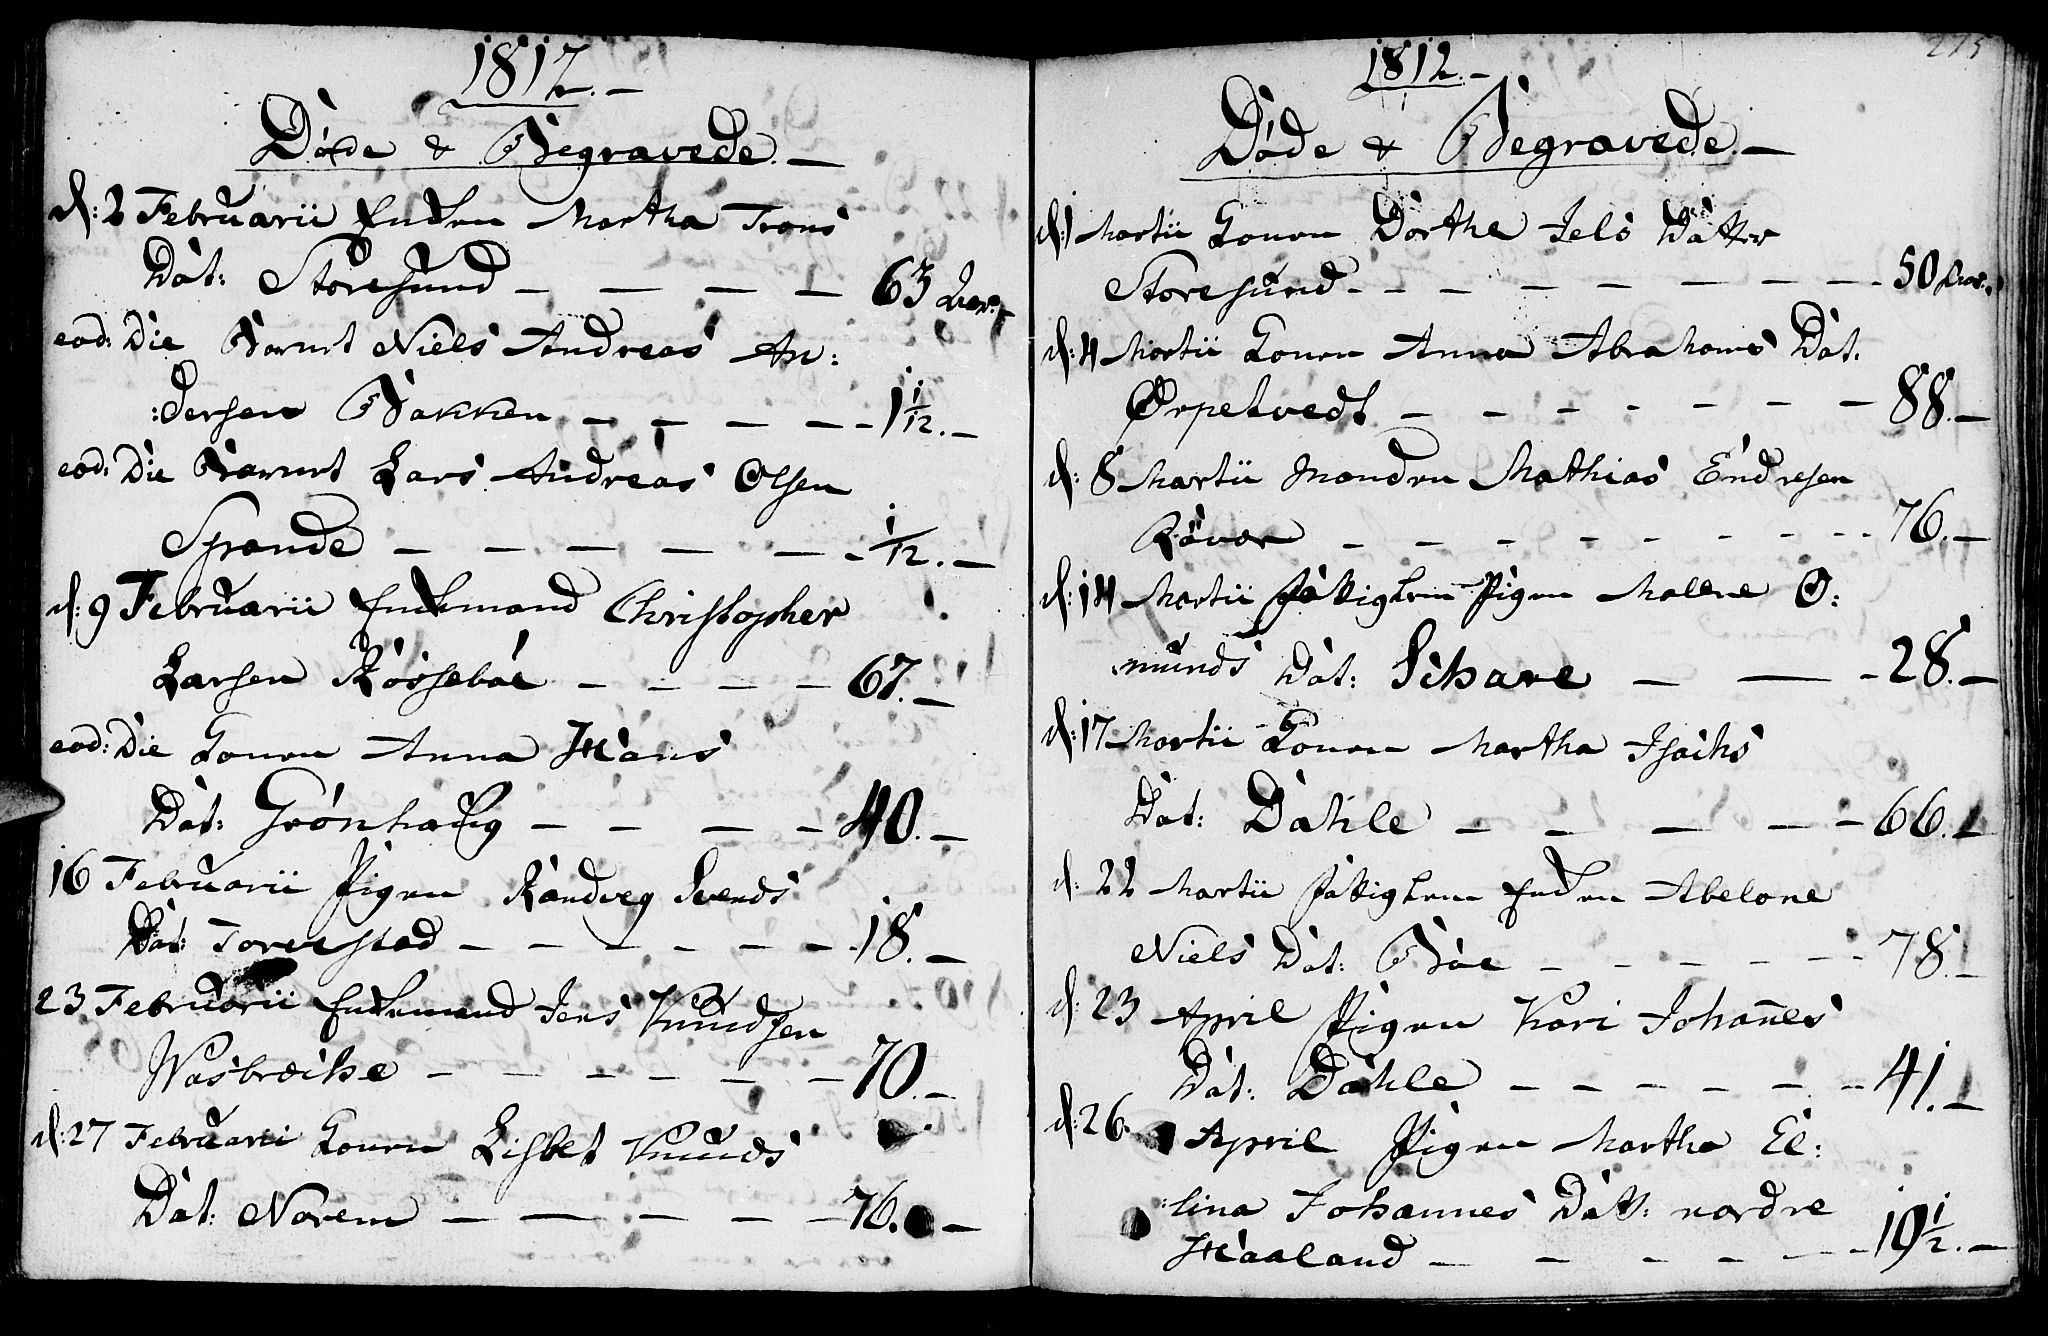 1812.
Døde & Begravede.
d: 2 Februarii Enken Martha Trons
Dat: Storesund — — — — 63 Aar.
eod: Die Barnet Niels Andreas An:
:dersen Bakken — — — — 1 1/12.
eod: Die Barnet Lars Andreas Olsen
Spande — — — — — 1/12.
d: 9 Februarii Enkemand Christopher
Larsen Røssebøe — — — — 67.
eod: Die Konen Anna Hans
Dat: Grønhaug — — — — 40.
16 Februarii Pigen Randveg Svends
Dat: Torvestad — — — — — 18.
23 Februarii Enkemand Jens Knudsen
Wasbrække — — — — — 70.
d: 27 Februarii Konen Lisbet Knuds
Dat: Norem — — — — — 76.
275
1812.
Døde & Begravede.
d: 1 Martii Konen Dorthe Jels Datter
Storesund — — — — — — 50 Aar.
d: 4 Martii Konen Anna Abrahams Dat.
Ørpetvedt — — — — — — 88.
d: 8 Martii Manden Mathias Endresen
Røvær — — — — — — 76.
d: 14 Martii fattiglem Pigen Malene O:
munds Dat: Schare — — — 28.
d: 17 Martii Konen Martha Isachs
Dat: Dahle — — — — — 66.
d: 22 Martii fattiglem Enken Abelone
Niels Dat: Bøe — — — — — 78.
d: 23 April Pigen Kari Johannes
Dat: Dahle — — — — — 41.
d: 26. April Pigen Martha El:
:lina Johannes Datt: nordre
Haaland — — — — — 19 1/2.